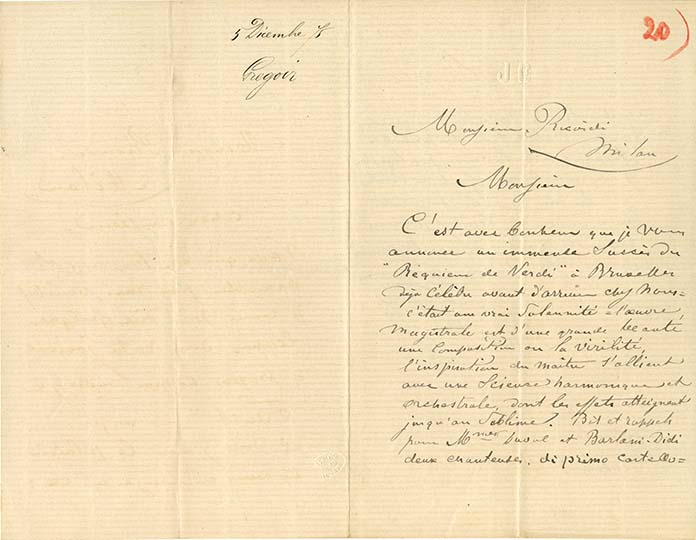 5 Dicembre 75
Gregoir
20)
JG
Monsieur Ricordi
Milan
Monsieur
C'est avec bonheur que je vous
annonce un immense Succès du
"Requiem de Verdi" à Bruxelles
déja Célèbre avant d'arriver chez nous=
c'était une vrai Solennité - l'œuvre,
magistrale est d'une grande beauté
une Composition ou la virilité,
l'inspiration du maître s'allient
avec une Science harmonique et
orchestrale, dont les effets atteignent
jusqu'au Sublime. Bis et rappels
pour Mmes Duval et Barlani-Didi
deux chanteuses, di primo cartello=